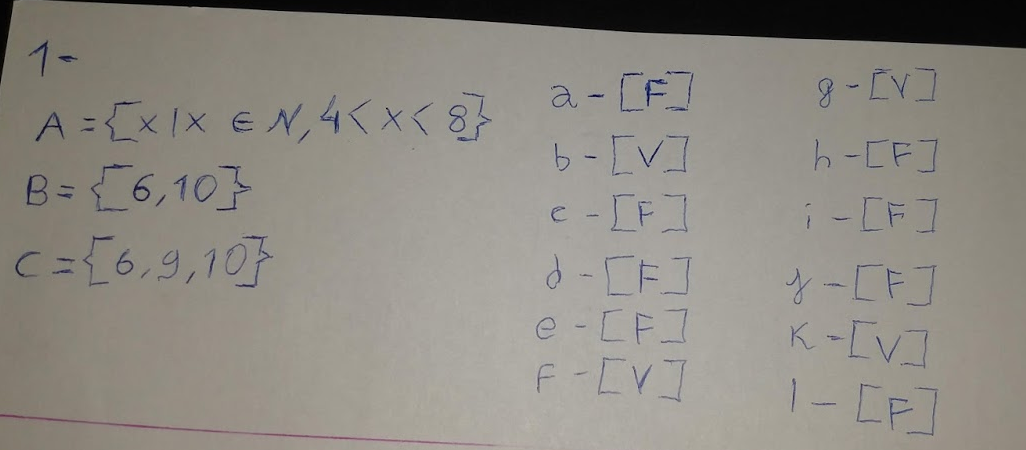 1-
A = {x | x ∈ N, 4 < x < 8}
B = {6, 10}
C = {6, 9, 10}
a - [F]
b - [V]
c - [F]
d - [F]
e - [F]
F - [V]
g - [V]
h - [F]
i - [F]
j - [F]
K - [V]
l - [F]